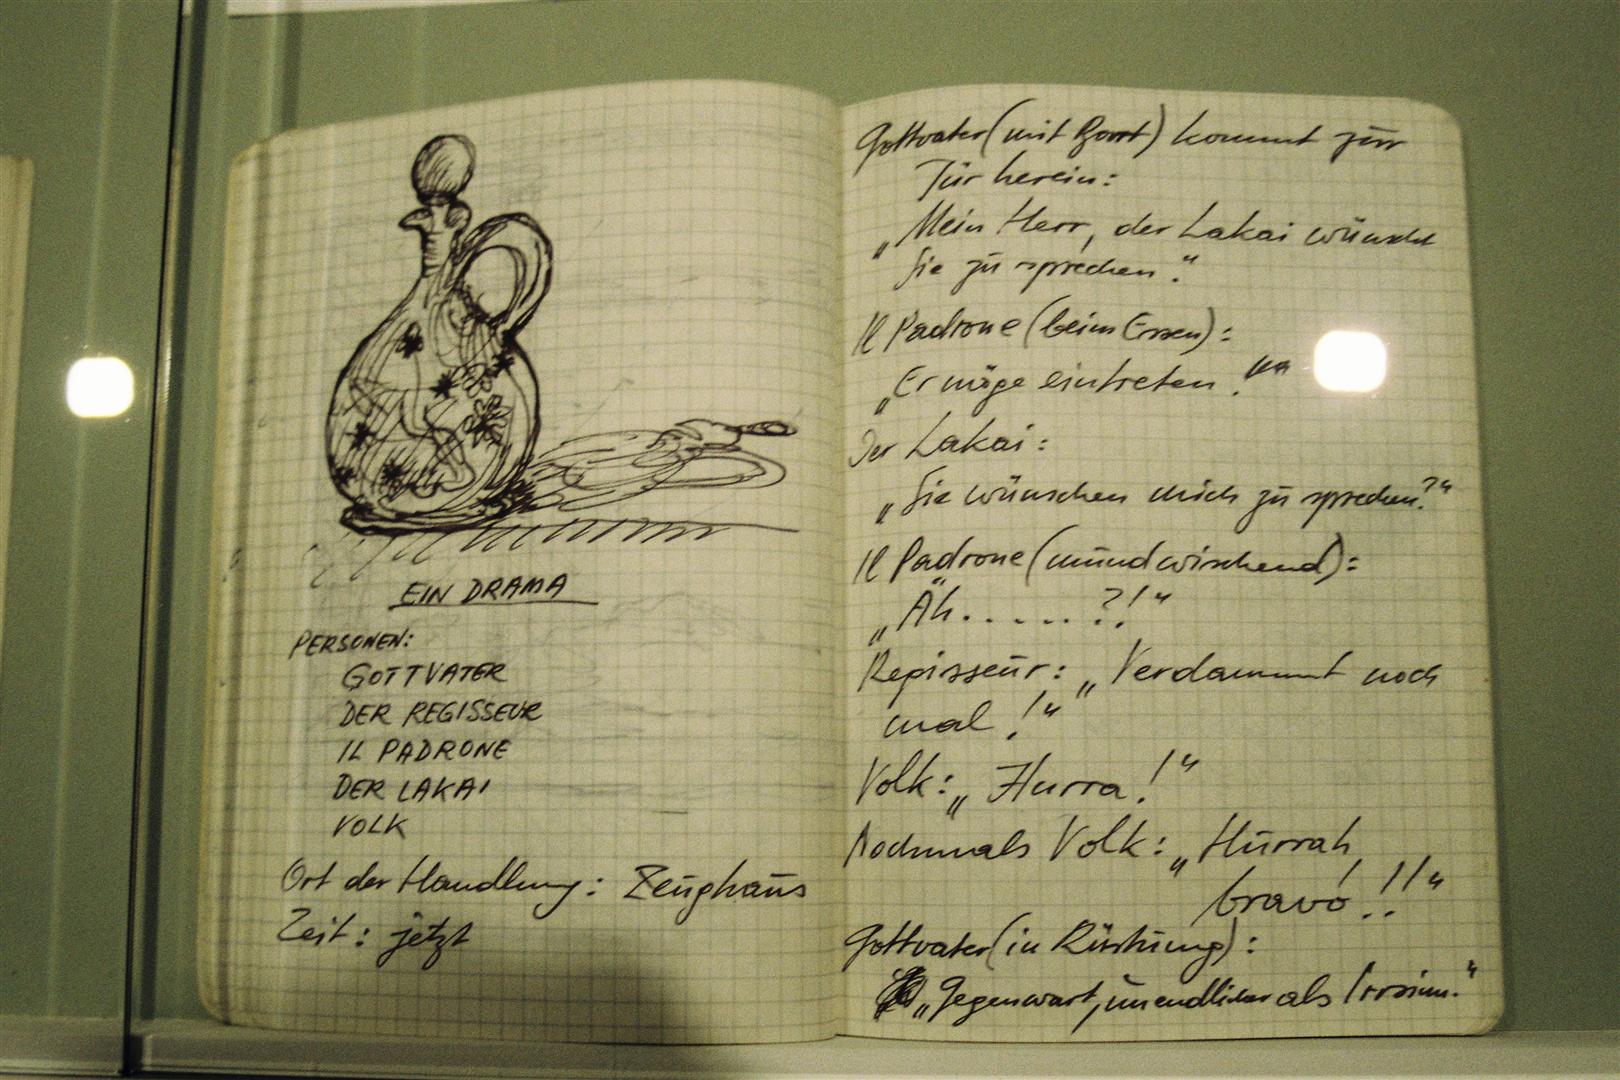 EIN DRAMA
PERSONEN:
GOTTVATER
DER REGISSEUR
IL PADRONE
DER LAKAI
VOLK
Ort der Handlung: Zeughaus
Zeit: jetzt
Gottvater (mit Bart) kommt zur
Tür herein:
„Mein Herr, der Lakai wünscht
Sie zu sprechen."
Il Padrone (beim Essen):
„Er möge eintreten!"
Der Lakai:
„Sie wünschen mich zu sprechen?"
Il Padrone (mundwischend):
„Äh......?!"
Regisseur: „Verdammt noch
mal!"
Volk: „Hurra!"
Nochmals Volk: „Hurrah
bravo!!"
Gottvater (in Rüstung):
„Gegenwart, unendlicher als Irrsinn."